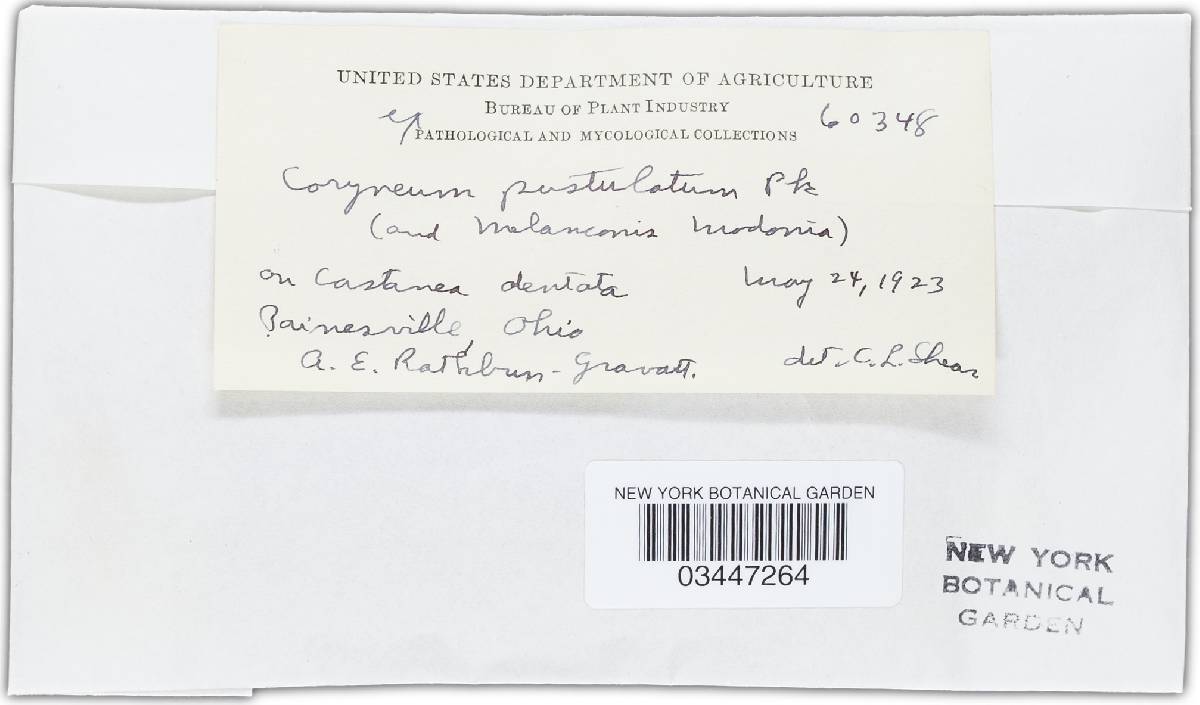 UNITED STATES DEPARTMENT OF AGRICULTURE
BUREAU OF PLANT INDUSTRY
ex PATHOLOGICAL AND MYCOLOGICAL COLLECTIONS 60348
Coryneum pustulatum Pk
(and Melanconis modonia)
on Castanea dentata May 24, 1923
Painesville, Ohio
A. E. Rathbun-Gravatt. det. C. L. Shear
NEW YORK BOTANICAL GARDEN
03447264
NEW YORK
BOTANICAL
GARDEN